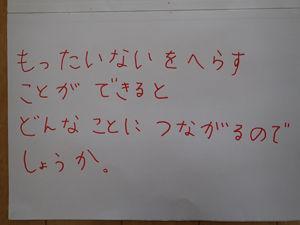 もったいないをへらす
ことができると
どんなことにつながるので
しょうか。